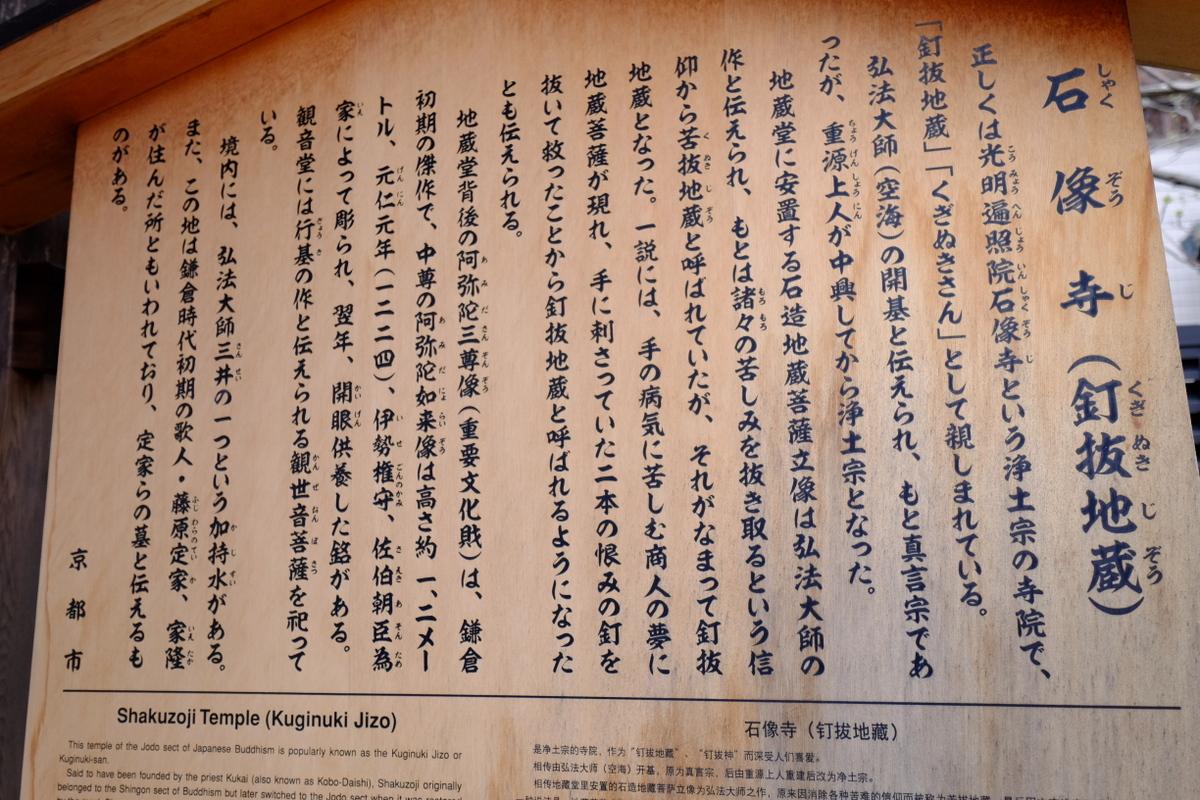 石像寺(釘抜地蔵)
正しくは光明遍照院石像寺という浄土宗の寺院で、
「釘抜地蔵」「くぎぬきさん」として親しまれている。
弘法大師(空海)の開基と伝えられ、もと真言宗であ
ったが、重源上人が中興してから浄土宗となった。
地蔵堂に安置する石造地蔵菩薩立像は弘法大師の
作と伝えられ、もとは諸々の苦しみを抜き取るという信
仰から苦抜地蔵と呼ばれていたが、それがなまって釘抜
地蔵となった。一説には、手の病気に苦しむ商人の夢に
地蔵菩薩が現れ、手に刺さっていた二本の恨みの釘を
抜いて救ったことから釘抜地蔵と呼ばれるようになった
とも伝えられる。
地蔵堂背後の阿弥陀三尊像(重要文化財)は、鎌倉
初期の傑作で、中尊の阿弥陀如来像は高さ約一、二メー
トル、元仁元年(一二二四)、伊勢権守、佐伯朝臣為
家によって彫られ、翌年、開眼供養した銘がある。
観音堂には行基の作と伝えられる観世音菩薩を祀って
いる。
境内には、弘法大師三井の一つという加持水がある。
また、この地は鎌倉時代初期の歌人・藤原定家、家隆
が住んだ所ともいわれており、定家らの墓と伝えるも
のがある。
京都市
Shakuzoji Temple (Kuginuki Jizo)
This temple of the Jodo sect of Japanese Buddhism is popularly known as the Kuginuki Jizo or
Kuginuki-san.
Said to have been founded by the priest Kukai (also known as Kobo-Daishi), Shakuzoji originally
belonged to the Shingon sect of Buddhism but later switched to the Jodo sect when it was restored
石像寺(钉拔地藏)
是净土宗的寺院,作为"钉拔地藏"、"钉拔神"而深受人们喜爱。
相传由弘法大师(空海)开基,原为真言宗,后由重源上人重建后改为净土宗。
相传地藏堂里安置的石造地藏菩萨立像为弘法大师之作,原来因消除各种苦难的信仰而被称为苦拔地藏,